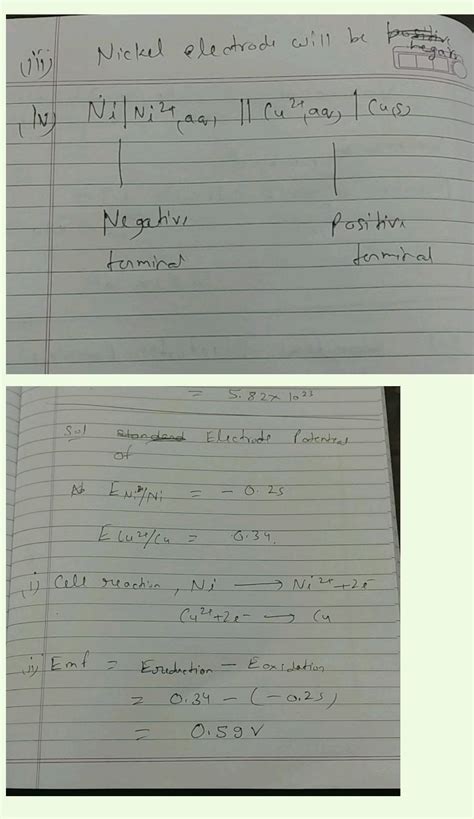 (iii) Nickel electrode will be negati
(iv) Ni | Ni²⁺(aq) || Cu²⁺(aq) | Cu(s)
Negative Positive
terminal terminal
= 5.82 x 10²³
Sol standard Electrode Potential
of
E Ni²⁺/Ni = - 0.25
E Cu²⁺/Cu = 0.34.
(i) Cell reaction, Ni → Ni²⁺+2e⁻
Cu²⁺+2e⁻ → Cu
(ii) Emf = Ereduction - Eoxidation
= 0.34 - (-0.25)
= 0.59 V